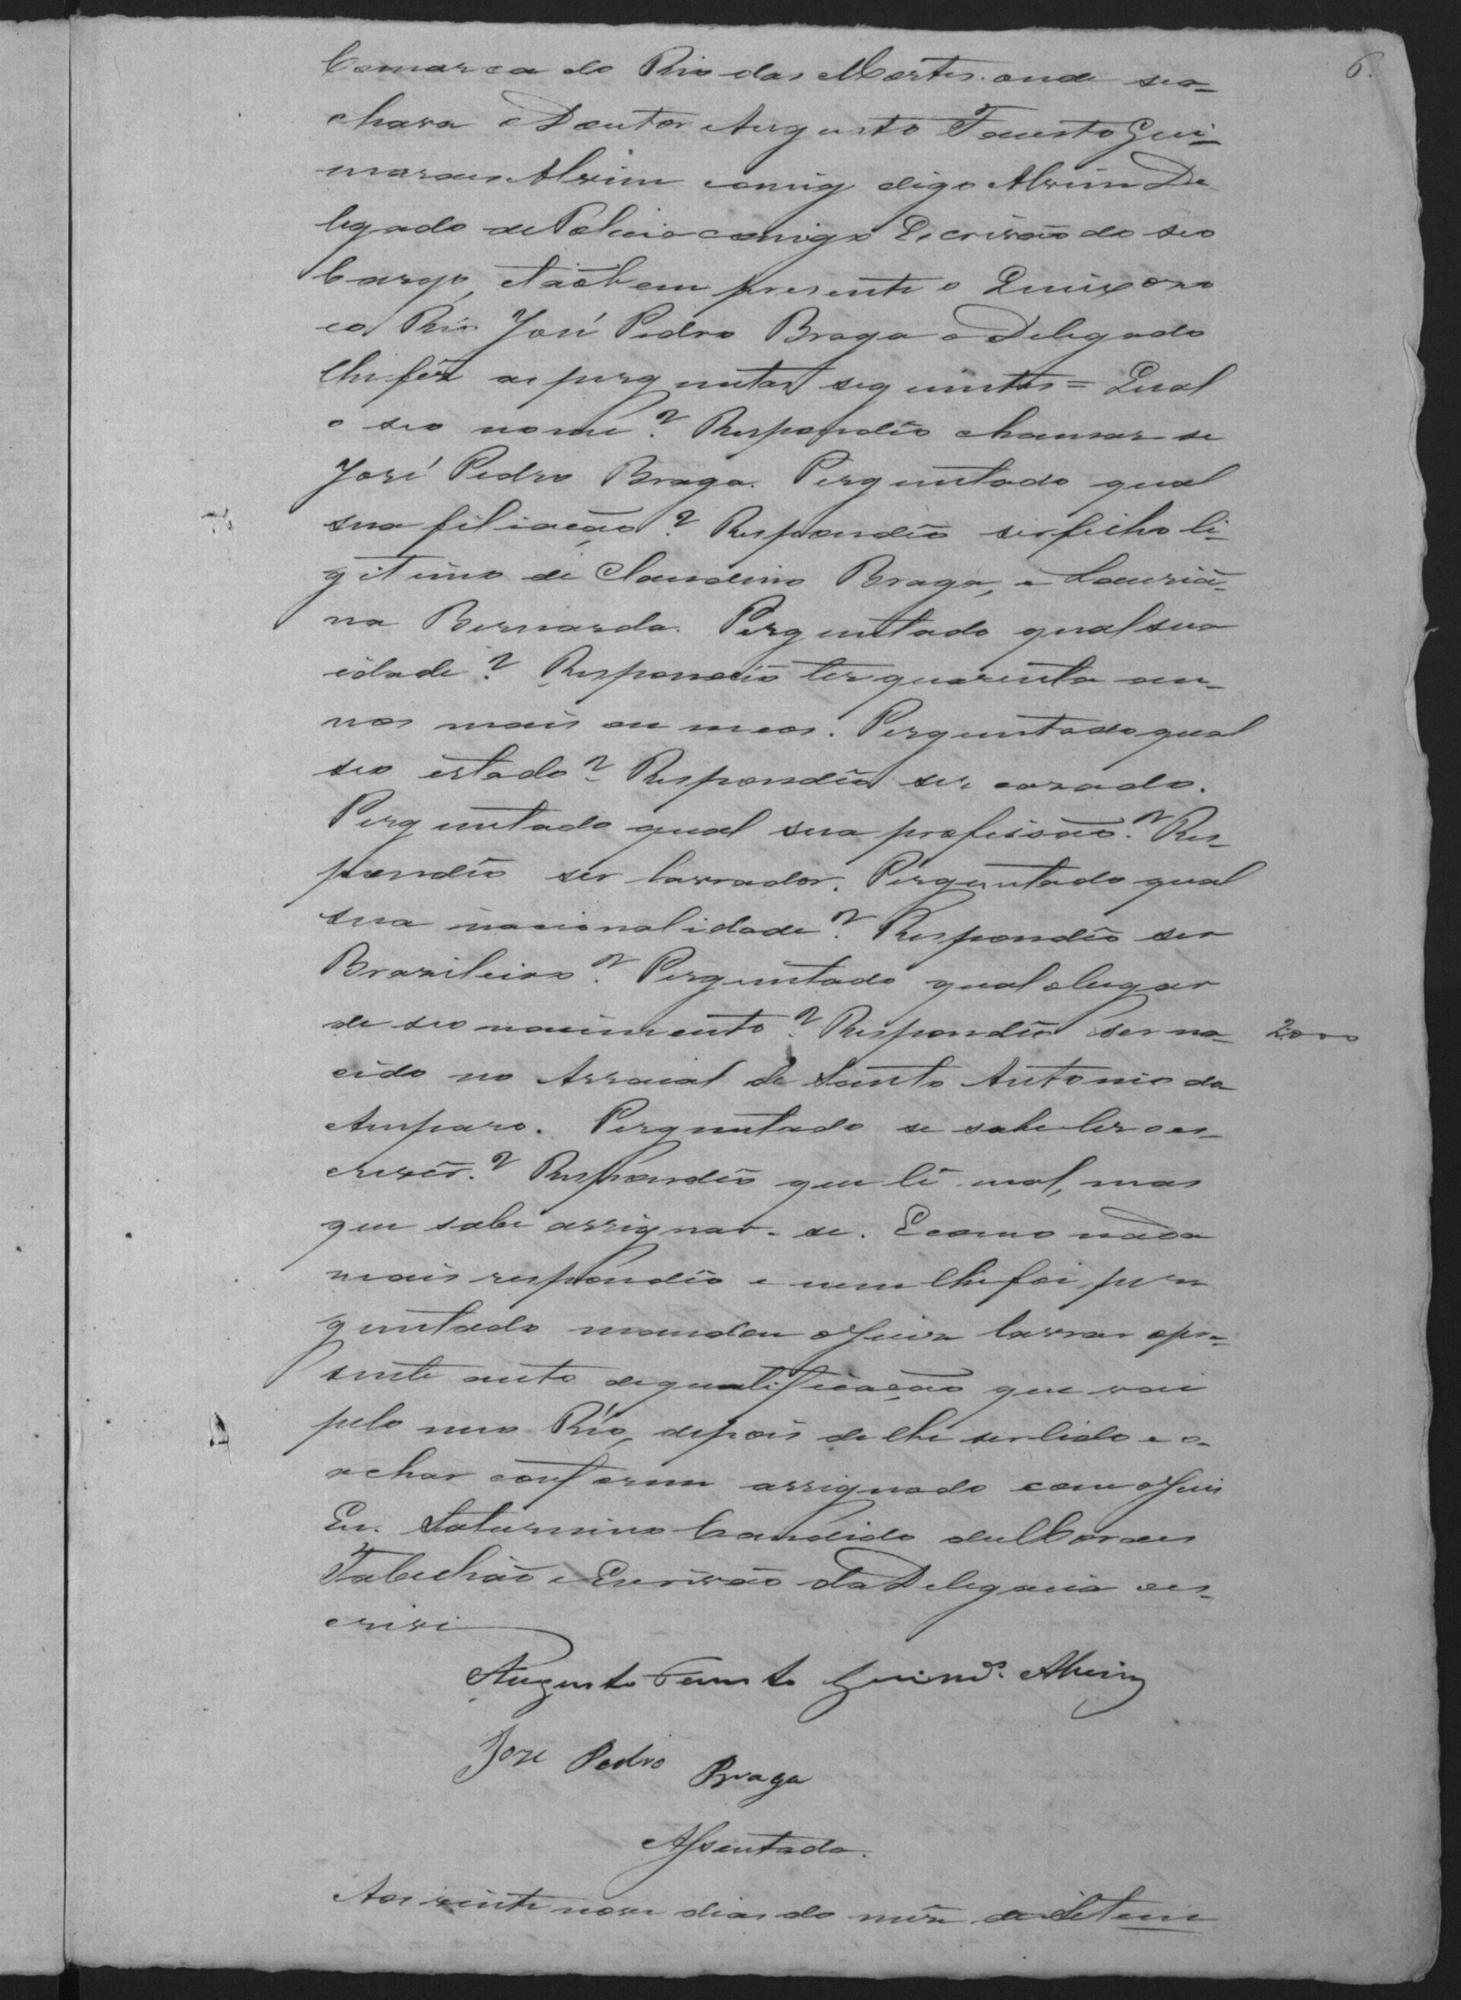 6.
Comarca do Rio das Mortes. onde sea-
chava o Doutor Augusto Fausto Gui-
maraes Alvim comig digo Alvim De
legado de Policia comigo Escrivão do seo
Cargo, etãobem presente o
co Réo José Pedro Braga o Delegado
lhe fêz as perguntas seguintes = Qual
o seo nome? Respondêo chamar-se
José Pedro Braga. Perguntado qual
sua filiação? Respondêo ser filho li-
gitimo de Claudino Braga, e Lauriã-
na Bernarda. Perguntado qual sua
idade? Respondêo ter quarenta an-
nos mais ou meos. Perguntado qual
seo estado? Respondêo ser cazado.
Perguntado qual sua profissão? Res-
pondêo ser lavrador. Perguntado qual
sua nacionalidade? Respondêo ser
Brazileiro? Perguntado qual o lugar
de seo nacimento? Respondêo ser na- 2000
cido no Arraial de Santo Antonio do
Amparo. Perguntado se sabe ler o es-
crevêr.? Respondêo que lê mal, mas
que sabe assignar-se. E como nada
mais respondêo e nem lhe foi per
guntado mandou o Juiz lavrar o pre-
sente auto de qualificação que vai
pelo mmo Réo, depois de lhe ser lido e o
achar conforme assignado com o Juis
Eu. Saturnino Candido de Moraes
Tabelhão e Escrivão da Delegacia o es-
crivi
Augusto Fausto Guimes. Alvim
Jose Pedro Braga
Assentada.
Aos vinte nove dias do mêz de Setem